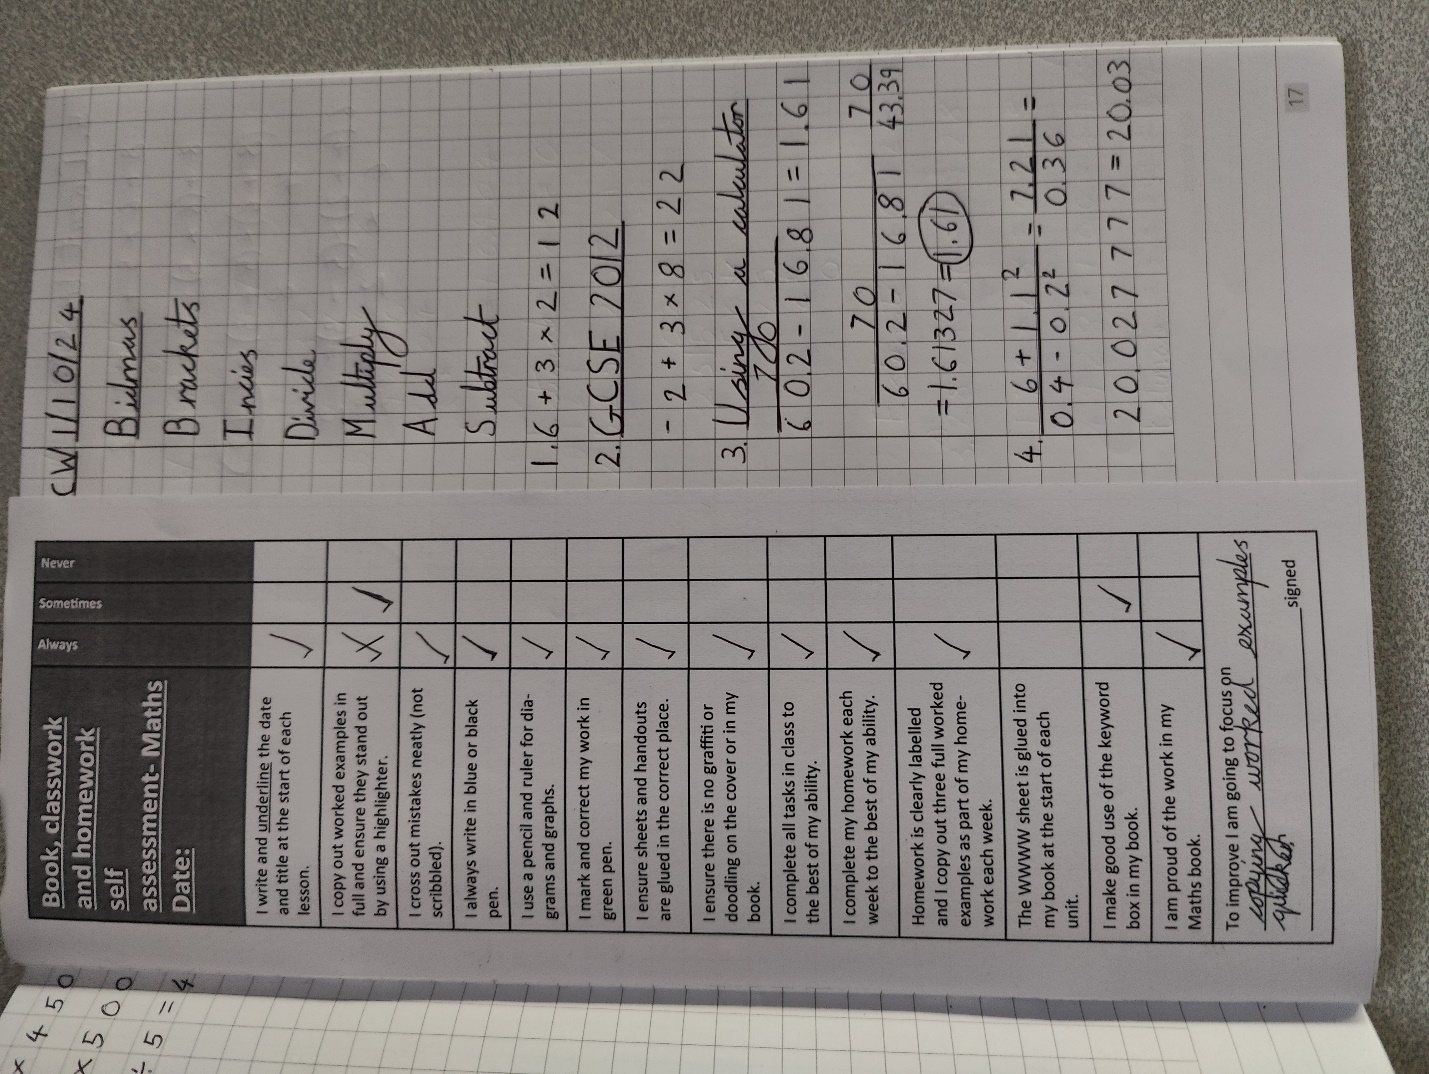 × 4 5 0
× 5 0 0
÷ 5 = 4
Book, classwork
and homework
self
assessment- Maths
Date:
Always
Sometimes
Never
I write and underline the date
and title at the start of each
lesson.
✓
I copy out worked examples in
full and ensure they stand out
by using a highlighter.
✓
I cross out mistakes neatly (not
scribbled).
✓
I always write in blue or black
pen.
✓
I use a pencil and ruler for dia-
grams and graphs.
✓
I mark and correct my work in
green pen.
✓
I ensure sheets and handouts
are glued in the correct place.
✓
I ensure there is no graffiti or
doodling on the cover or in my
book.
✓
I complete all tasks in class to
the best of my ability.
✓
I complete my homework each
week to the best of my ability.
✓
Homework is clearly labelled
and I copy out three full worked
examples as part of my home-
work each week.
✓
The WWW sheet is glued into
my book at the start of each
unit.
I make good use of the keyword
box in my book.
✓
I am proud of the work in my
Maths book.
✓
To improve I am going to focus on
copying worked examples
signed
CW 1/10/24
Bidmas
Brackets
Incies
Divide
Multiply
Add
Subtract
1. 6 + 3 × 2 = 12
2. GCSE 2012
- 2 + 3 × 8 = 22
3. Using a calculator
60.2 - 16.81 = 1.61
70 70
60.2 - 16.81 43.39
= 1.61327 = 1.61
4. 6 + 1.1² = 7.21 =
0.4 - 0.2² 0.36
20.02777777 = 20.03
17